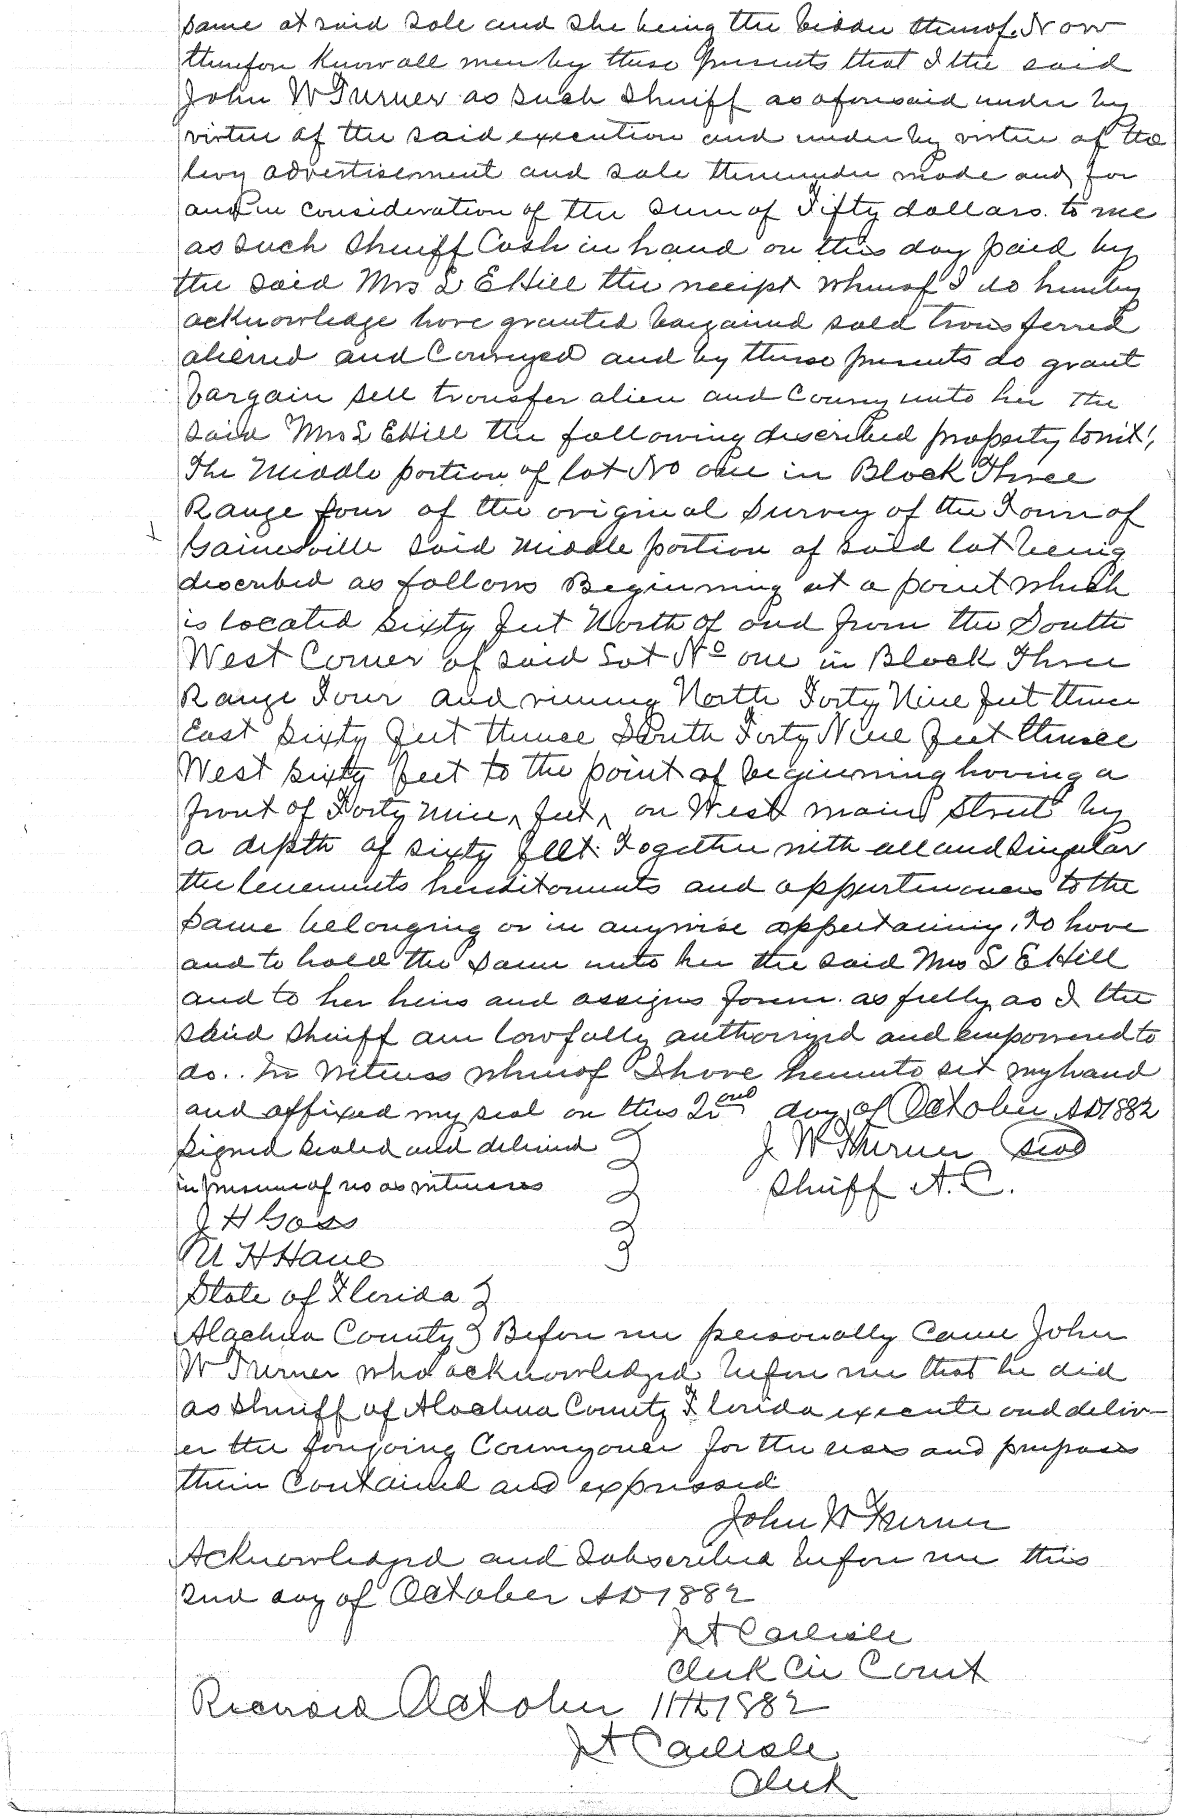 same at said sale and she being the bidder thereof. Now
therefore Know all men by these presents that I the said
John W Turner as such Sheriff as aforesaid under by
virtue of the said execution and under by virtue of the
levy advertisement and sale thereunder made and for
and in consideration of the sum of Fifty dollars. to me
as such Sheriff Cash in hand on this day paid by
the said Mrs L E Hill the receipt whereof I do hereby
acknowledge have granted bargained sold transferred
aliened and Conveyed and by these presents do grant
bargain sell transfer alien and Convey unto her the
said Mrs L E Hill the following described property towit!,
The Middle portion of lot No one in Block Three
Range four of the original Survey of the Town of
Gainesville said Middle portion of said lot being
described as follows Beginning at a point which
is located sixty feet North of and from the South
West Corner of said Lot No one in Block Three
Range Four and running North Forty Nine feet thence
East sixty feet thence South Forty Nine feet thence
West sixty feet to the point of beginning having a
front of Forty nine feet on West main Street by
a depth of sixty feet. Together with all and Singular
the tenements hereditaments and appurtenances to the
same belonging or in anywise appertaining. To have
and to hold the same unto her the said Mrs L E Hill
and to her heirs and assigns forever. as fully as I the
said Sheriff am lawfully authorized and empowered to
do.. In Witness whereof I have hereunto set my hand
and affixed my seal on this 2nd day of October AD 1882
Signed sealed and delivered J W Turner seal
in presence of us as witnesses Sheriff A. C.
J H Goss
State of Florida
Alachua County Before me personally Came John
W Turner who acknowledged before me that he did
as Sheriff of Alachua County Florida execute and deliv-
er the foregoing Conveyance for the uses and purposes
therein Contained and expressed
John W Turner
Acknowledged and Subscribed before me this
2nd day of October AD 1882
J A Carlisle
Clerk Cir Court
Recorded October 11th 1882
J A Carlisle
Clerk